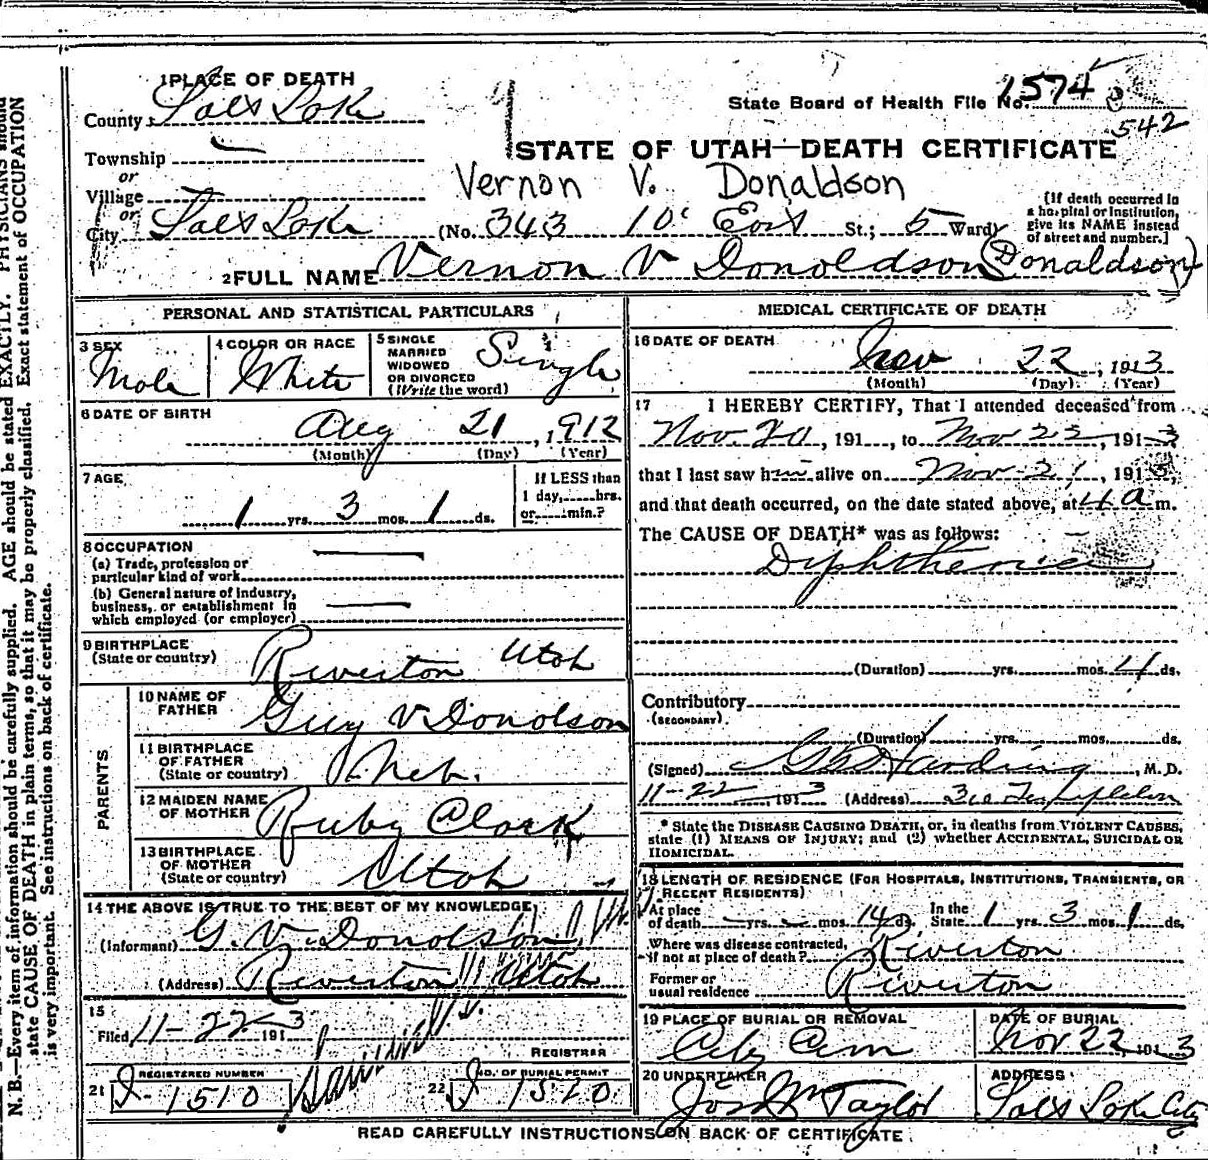 N. B.—Every item of information should be carefully supplied. AGE should be stated EXACTLY. PHYSICIANS should
state CAUSE OF DEATH in plain terms, so that it may be properly classified. Exact statement of OCCUPATION
is very important. See instructions on back of certificate.
1 PLACE OF DEATH
County Salt Lake
Township
or
Village
or
City Salt Lake
State Board of Health File No. 1574
542
STATE OF UTAH—DEATH CERTIFICATE
Vernon V. Donaldson
(No. 343 10' East St.; 5 Ward)
[If death occurred in
a hospital or institution,
give its NAME instead
of street and number.]
2 FULL NAME Vernon V Donoldson (Donaldson)
PERSONAL AND STATISTICAL PARTICULARS
3 SEX
Male
4 COLOR OR RACE
White
5 SINGLE
MARRIED
WIDOWED
OR DIVORCED
(Write the word)
Single
6 DATE OF BIRTH
Aug 21, 1912
(Month) (Day) (Year)
7 AGE
1 yrs. 3 mos. 1 ds.
If LESS than
1 day,......hrs.
or......min.?
8 OCCUPATION
(a) Trade, profession or
particular kind of work
(b) General nature of industry,
business, or establishment in
which employed (or employer)
9 BIRTHPLACE
(State or country)
Riverton Utah
PARENTS
10 NAME OF
FATHER
Guy V Donolson
11 BIRTHPLACE
OF FATHER
(State or country)
Neb.
12 MAIDEN NAME
OF MOTHER
Ruby Clark
13 BIRTHPLACE
OF MOTHER
(State or country)
Utah
14 THE ABOVE IS TRUE TO THE BEST OF MY KNOWLEDGE
(Informant) G. V. Donolson
(Address) Riverton Utah
15
Filed 11-22-3 191
REGISTRAR
21 REGISTERED NUMBER
1510
22 NO. OF BURIAL PERMIT
1520
MEDICAL CERTIFICATE OF DEATH
16 DATE OF DEATH
Nov 22, 1913
(Month) (Day) (Year)
17 I HEREBY CERTIFY, That I attended deceased from
Nov. 20, 191..., to Nov 22, 1913
that I last saw him alive on Nov 21, 1913,
and that death occurred, on the date stated above, at 4 a m.
The CAUSE OF DEATH* was as follows:
Diphtheria
(Duration) yrs. mos. 4 ds.
Contributory
(SECONDARY)
(Duration) yrs. mos. ds.
(Signed) Harding, M. D.
11-22, 1913 (Address) Templeton
* State the DISEASE CAUSING DEATH, or, in deaths from VIOLENT CAUSES,
state (1) MEANS OF INJURY; and (2) whether ACCIDENTAL, SUICIDAL OR
HOMICIDAL.
18 LENGTH OF RESIDENCE (FOR HOSPITALS, INSTITUTIONS, TRANSIENTS, OR
RECENT RESIDENTS)
At place
of death yrs. mos. 14 ds.
In the
State 1 yrs. 3 mos. 1 ds.
Where was disease contracted,
if not at place of death? Riverton
Former or
usual residence Riverton
19 PLACE OF BURIAL OR REMOVAL
City Cem
DATE OF BURIAL
Nov 22 1913
20 UNDERTAKER
Jos Wm Taylor
ADDRESS
Salt Lake City
READ CAREFULLY INSTRUCTIONS ON BACK OF CERTIFICATE